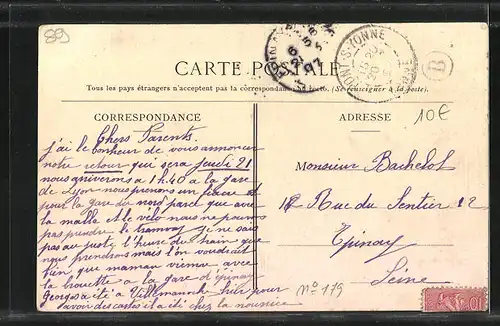 89
CARTE POSTALE
Tous les pays étrangers n'acceptent pas la correspondance au recto. (Se renseigner à la poste)
B
10€
CORRESPONDANCE
Chers Parents.
j'ai le bonheur de vous annoncer
notre retour qui sera jeudi 21
nous arriverons à 1h40 à la gare
de Lyon nous prenons un
pour la gare du nord parce que avec
la malle et le vélo nous ne pouvons
pas prendre le tramway je ne sais
pas au juste l'heure du train que
nous prendrons mais l'on voudrait
bien que maman vienne avec
la brouette à la gare d'épinay
Georges a été à Villemanoche hier pour
avoir des cartes et a été chez la nourrice
ADRESSE
Monsieur Bachelot
12 Rue du Sentier 12
Epinay
Seine
N° 179
10